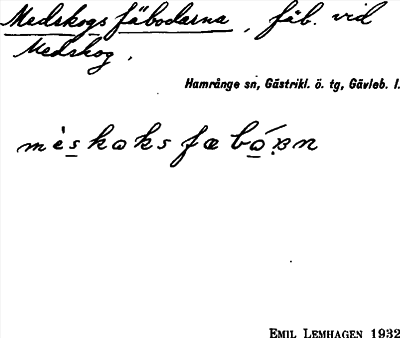 Medskogs fäbodarna, fäb. vid
Medskog.
Hamrånge sn, Gästrikl. ö. tg, Gävleb. l.
mèskoks fæbó̱ṇn
EMIL LEMHAGEN 1932